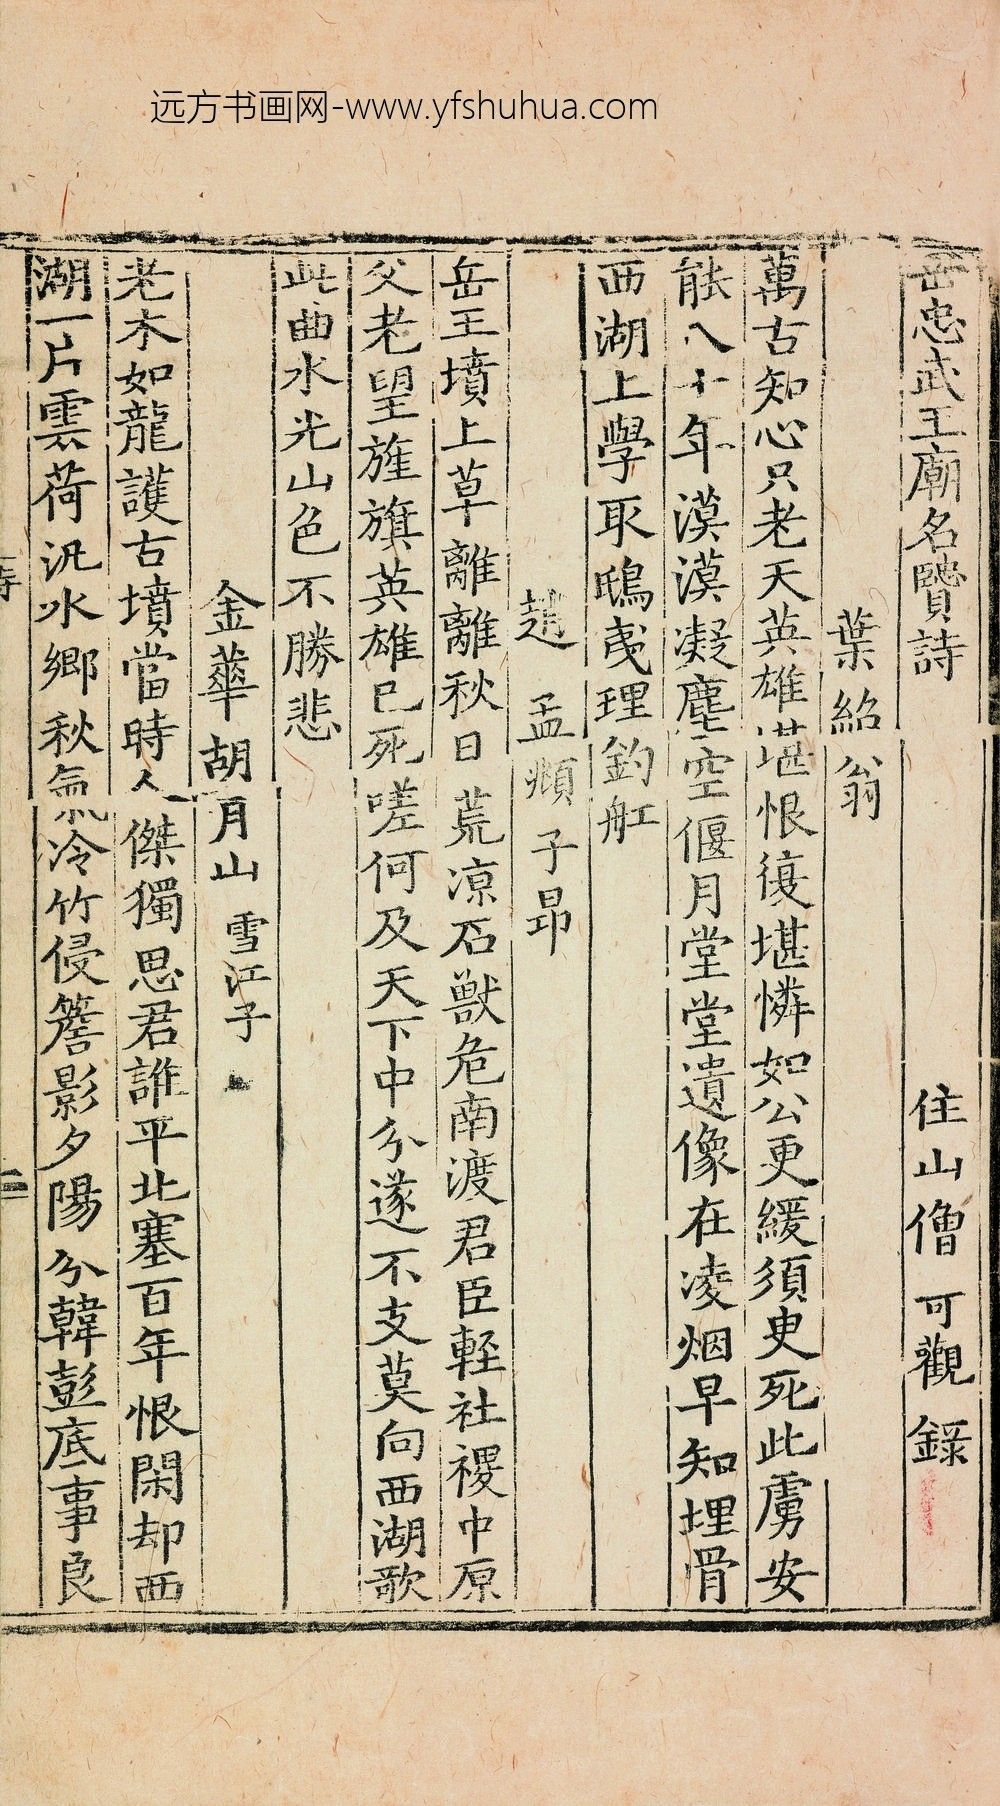 远方书画网-www.yfshuhua.com
岳忠武王廟名賢詩 住山僧可觀錄
葉紹翁
萬古知心只老天英雄堪恨復堪憐如公更緩須臾死此虜安
能八十年漠漠凝塵空偃月堂堂遺像在凌烟早知埋骨
西湖上學取鴟夷理釣舡
趙孟頫子昂
岳王墳上草離離秋日荒凉石獸危南渡君臣輕社稷中原
父老望旌旗英雄已死嗟何及天下中分遂不支莫向西湖歌
此曲水光山色不勝悲
金華胡月山雪江子
老木如龍護古墳當時人傑獨思君誰平北塞百年恨閑却西
湖一片雲荷汎水鄉秋氣冷竹侵簷影夕陽分韓彭底事良
二